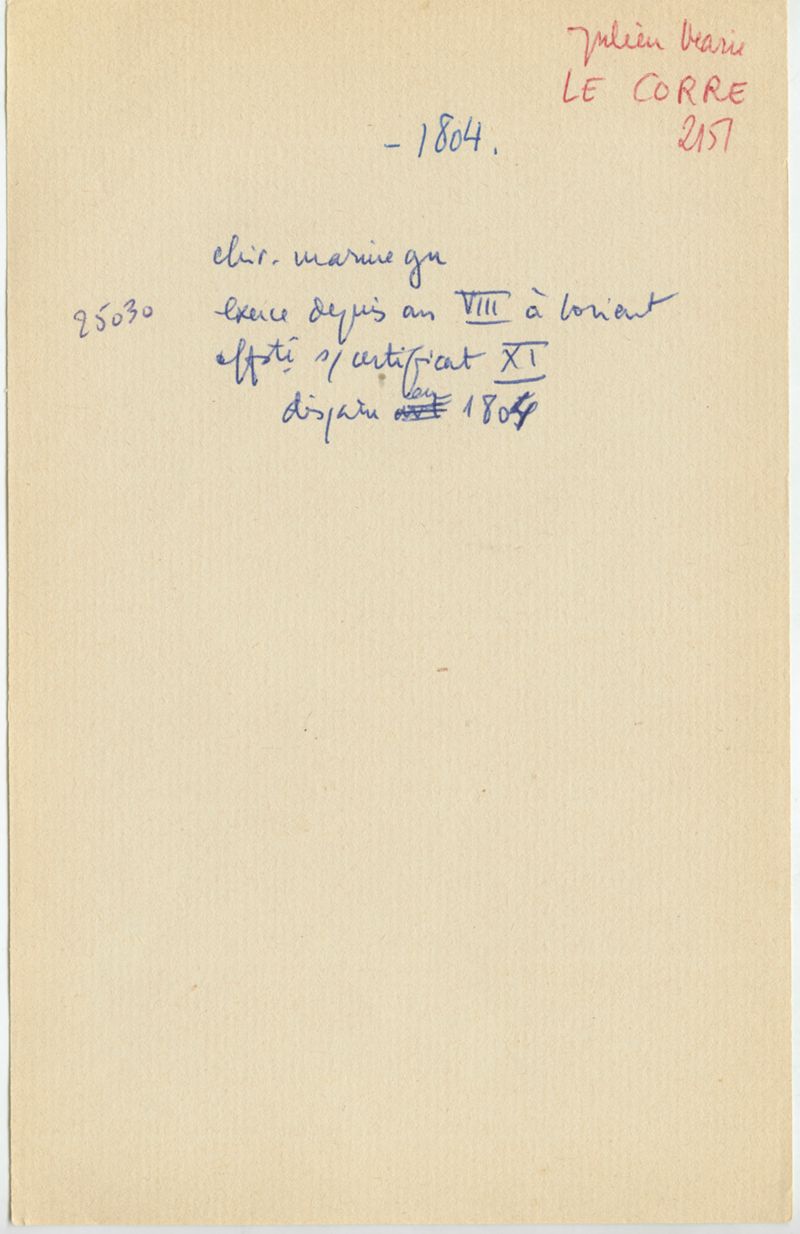 Julien Marie
LE CORRE
2151
- 1804.
chir. marine gu
25030 exerce depuis an VIII à Lorient
s/ certificat XI
disparu en 1804